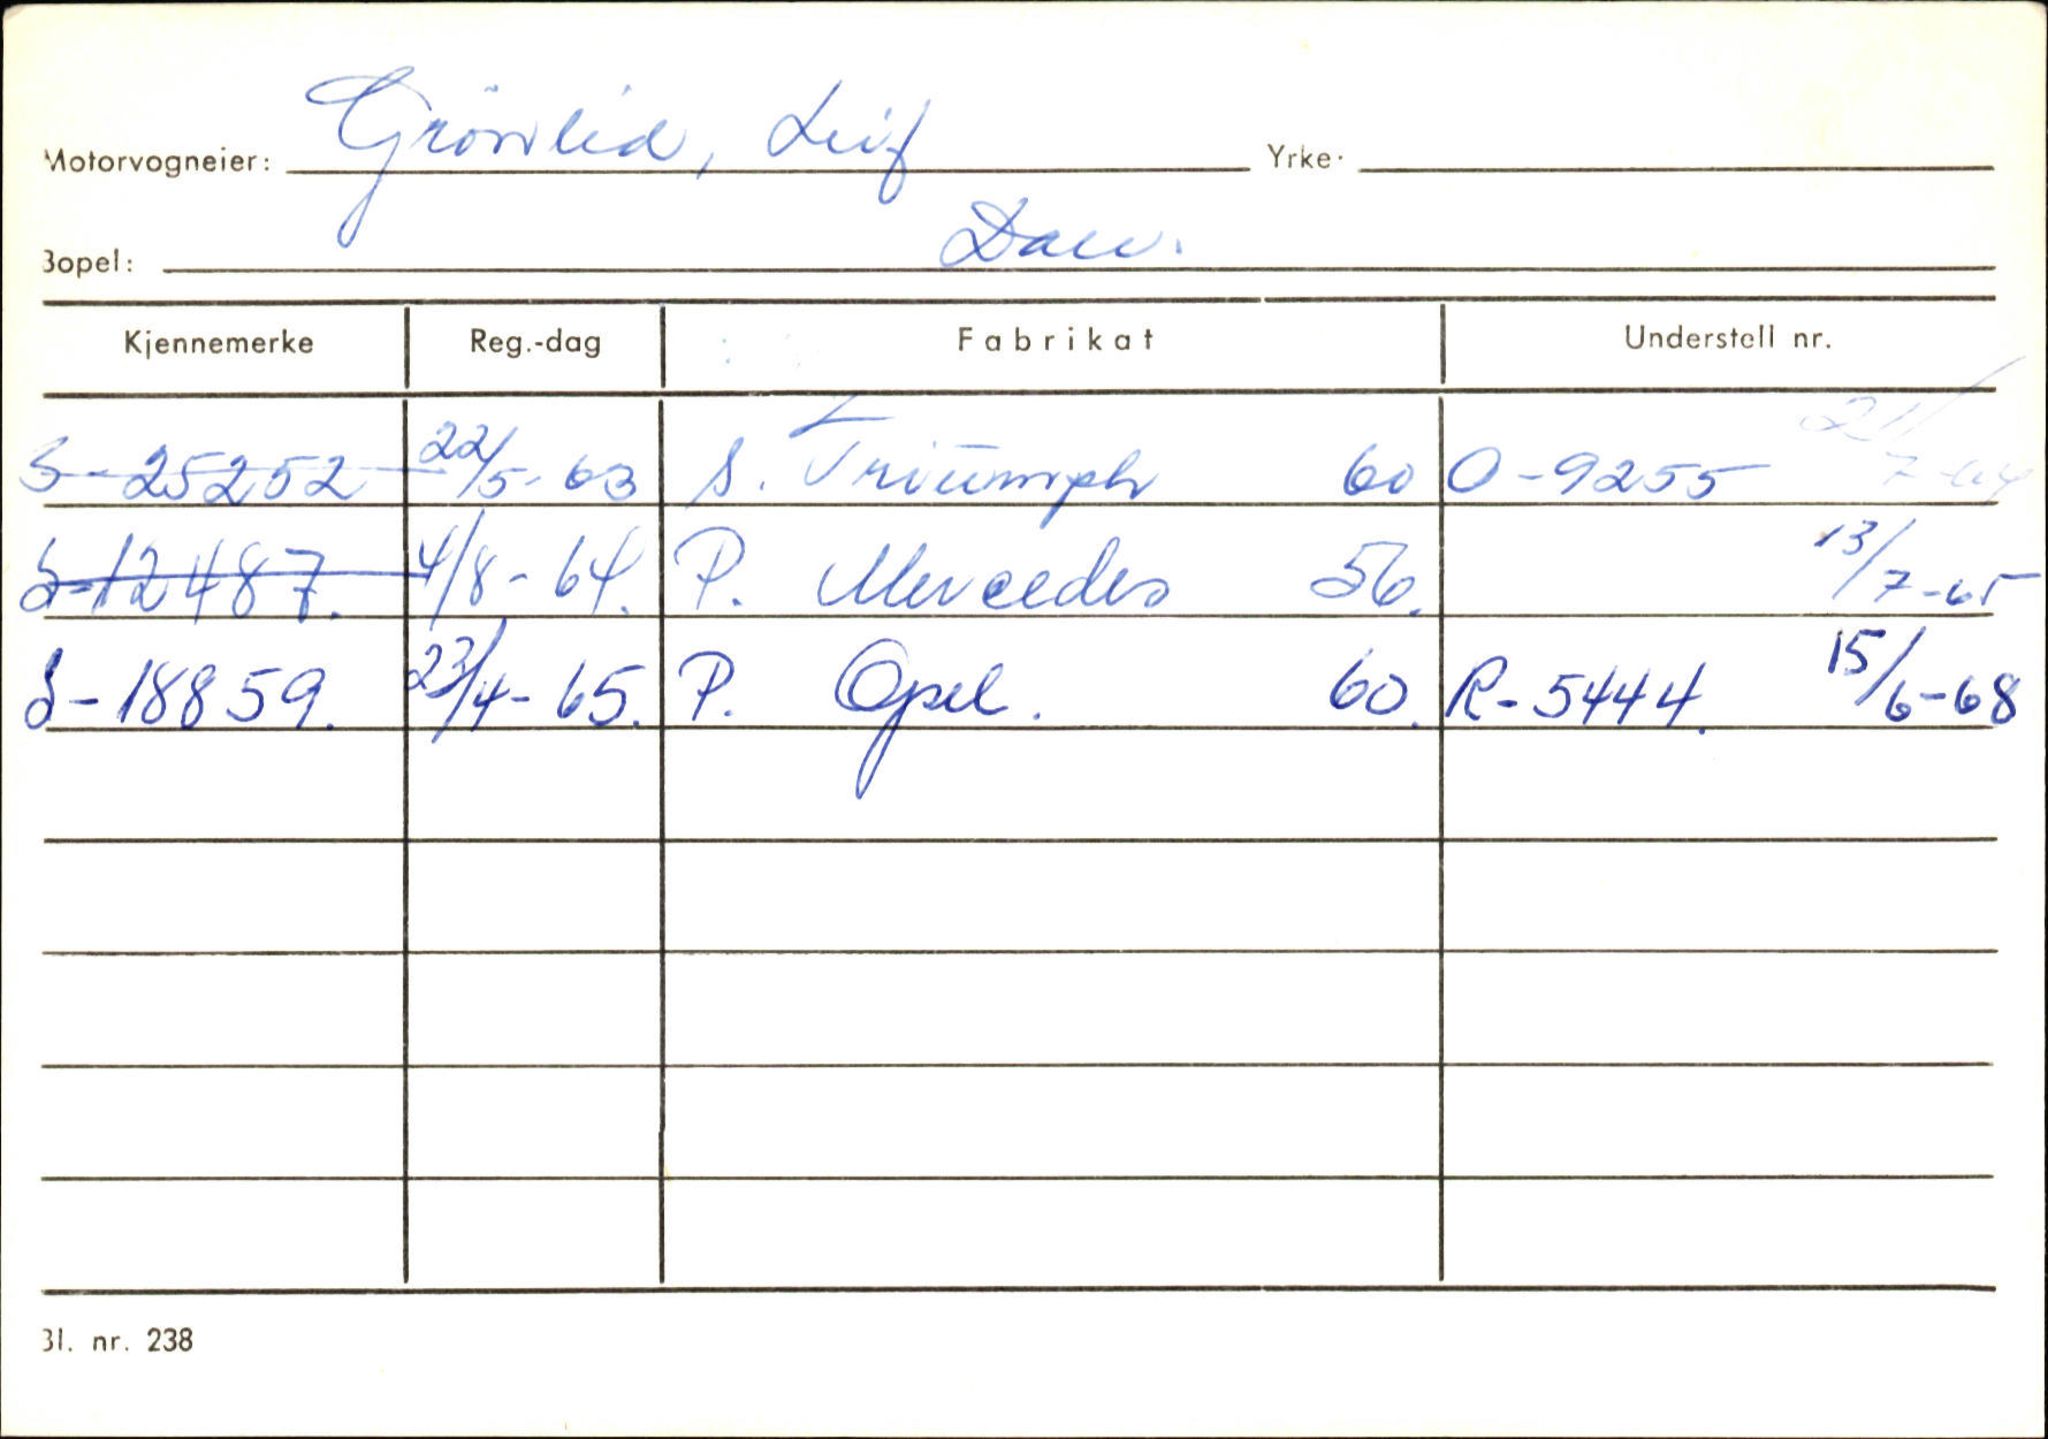 Motorvogneier: Grönlid, Leif Yrke·
Bopel: Dale.
Kjennemerke Reg.-dag Fabrikat Understell nr.
S-25252 22/5-63 S. Triumph 60 O-9255 21/7-64
S-12487. 4/8-64. P. Mercedes 56. 13/7-65
S-18859. 23/4-65. P. Opel. 60. R-5444. 15/6-68
Bl. nr. 238